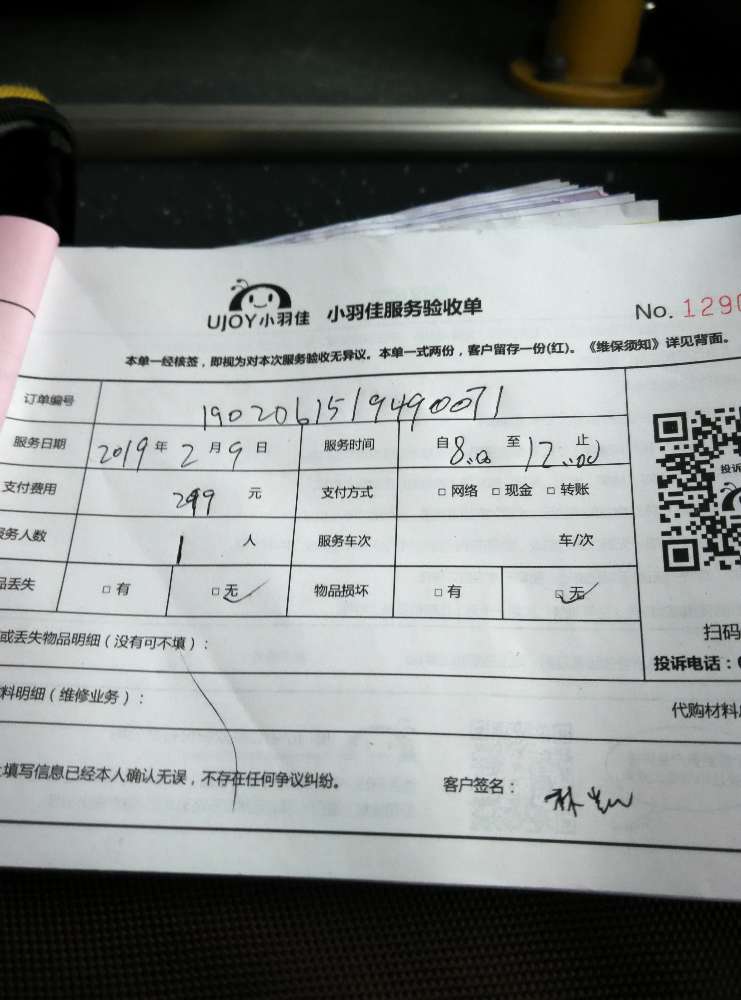 UJOY小羽佳 小羽佳服务验收单 No. 1290
本单一经核签，即视为对本次服务验收无异议。本单一式两份，客户留存一份(红)。《维保须知》详见背面。
订单编号 1902061519490071
服务日期 2019 年 2 月 9 日 服务时间 自 8:00 至 12:00 止
支付费用 299 元 支付方式 □ 网络 □ 现金 □ 转账
务人数 1 人 服务车次 车/次
品丢失 □ 有 □ 无 物品损坏 □ 有 □ 无
投诉
扫码
或丢失物品明细（没有可不填）：
投诉电话：
料明细（维修业务）：
代购材料
填写信息已经本人确认无误，不存在任何争议纠纷。 客户签名：